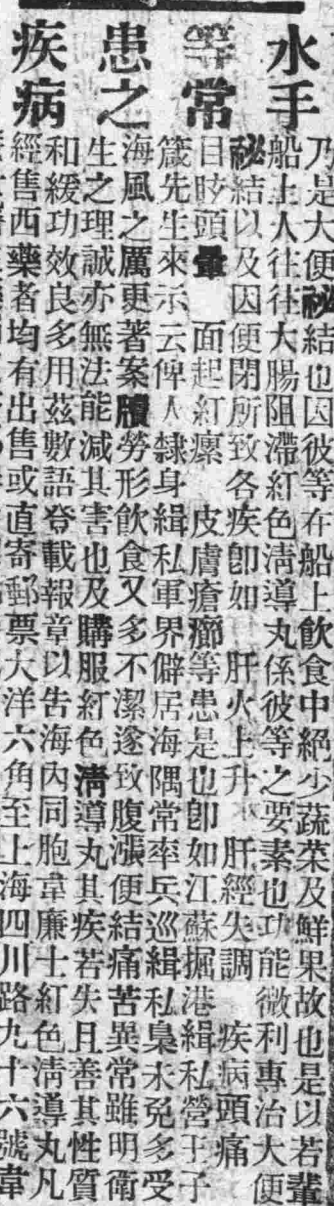 水手
等常
患之
疾病
乃是大便秘結也因彼等在船上飲食中絕少蔬菜及鮮果故也是以若輩
船上人往往大腸阻滯紅色淸導丸係彼等之要素也功能微利專治大便
秘結以及因便閉所致各疾卽如 肝火上升 肝經失調 疾病頭痛
目昡頭暈 面起紅瘰 皮膚瘡癤等患是也卽如江蘇掘港緝私營王子
箴先生來示云俾人隸身緝私軍界僻居海隅常率兵巡緝私梟未免多受
海風之厲更著案牘勞形飲食又多不潔遂致腹漲便結痛苦異常雖明衛
生之理誠亦無法能減其害也及購服紅色淸導丸其疾若失且善其性質
和緩功效良多用茲數語登載報章以告海內同胞韋廉士紅色淸導丸凡
經售西藥者均有出售或直寄郵票大洋六角至上海四川路九十六號韋